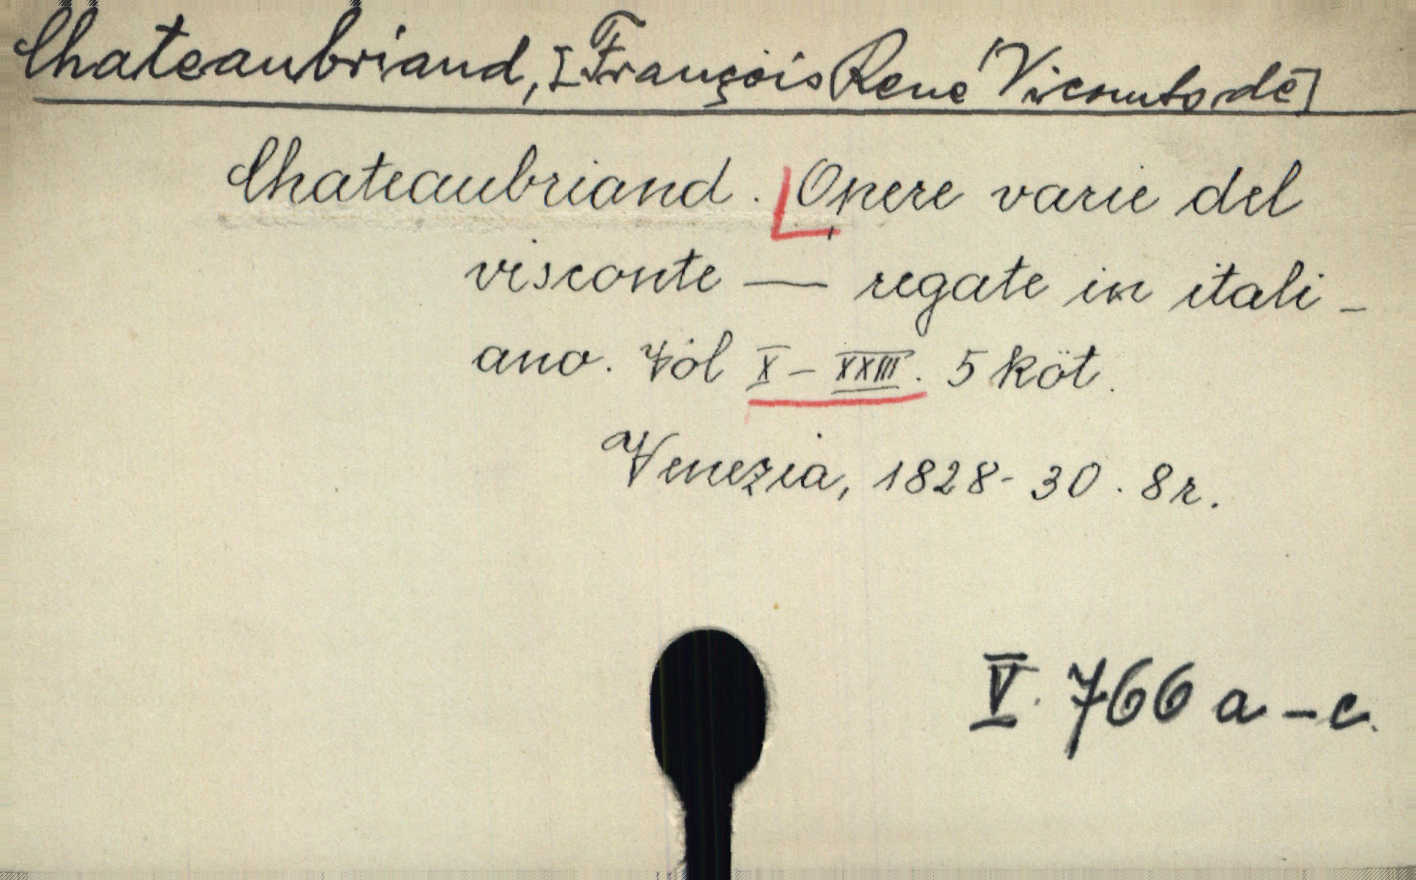 Chateaubriand, [François René Vicomte de]
Chateaubriand. Opere varie del
visconte — regate in itali-
ano. Vol X-XXIII. 5 köt.
Venezia, 1828-30. 8r.
V. 766 a-c.